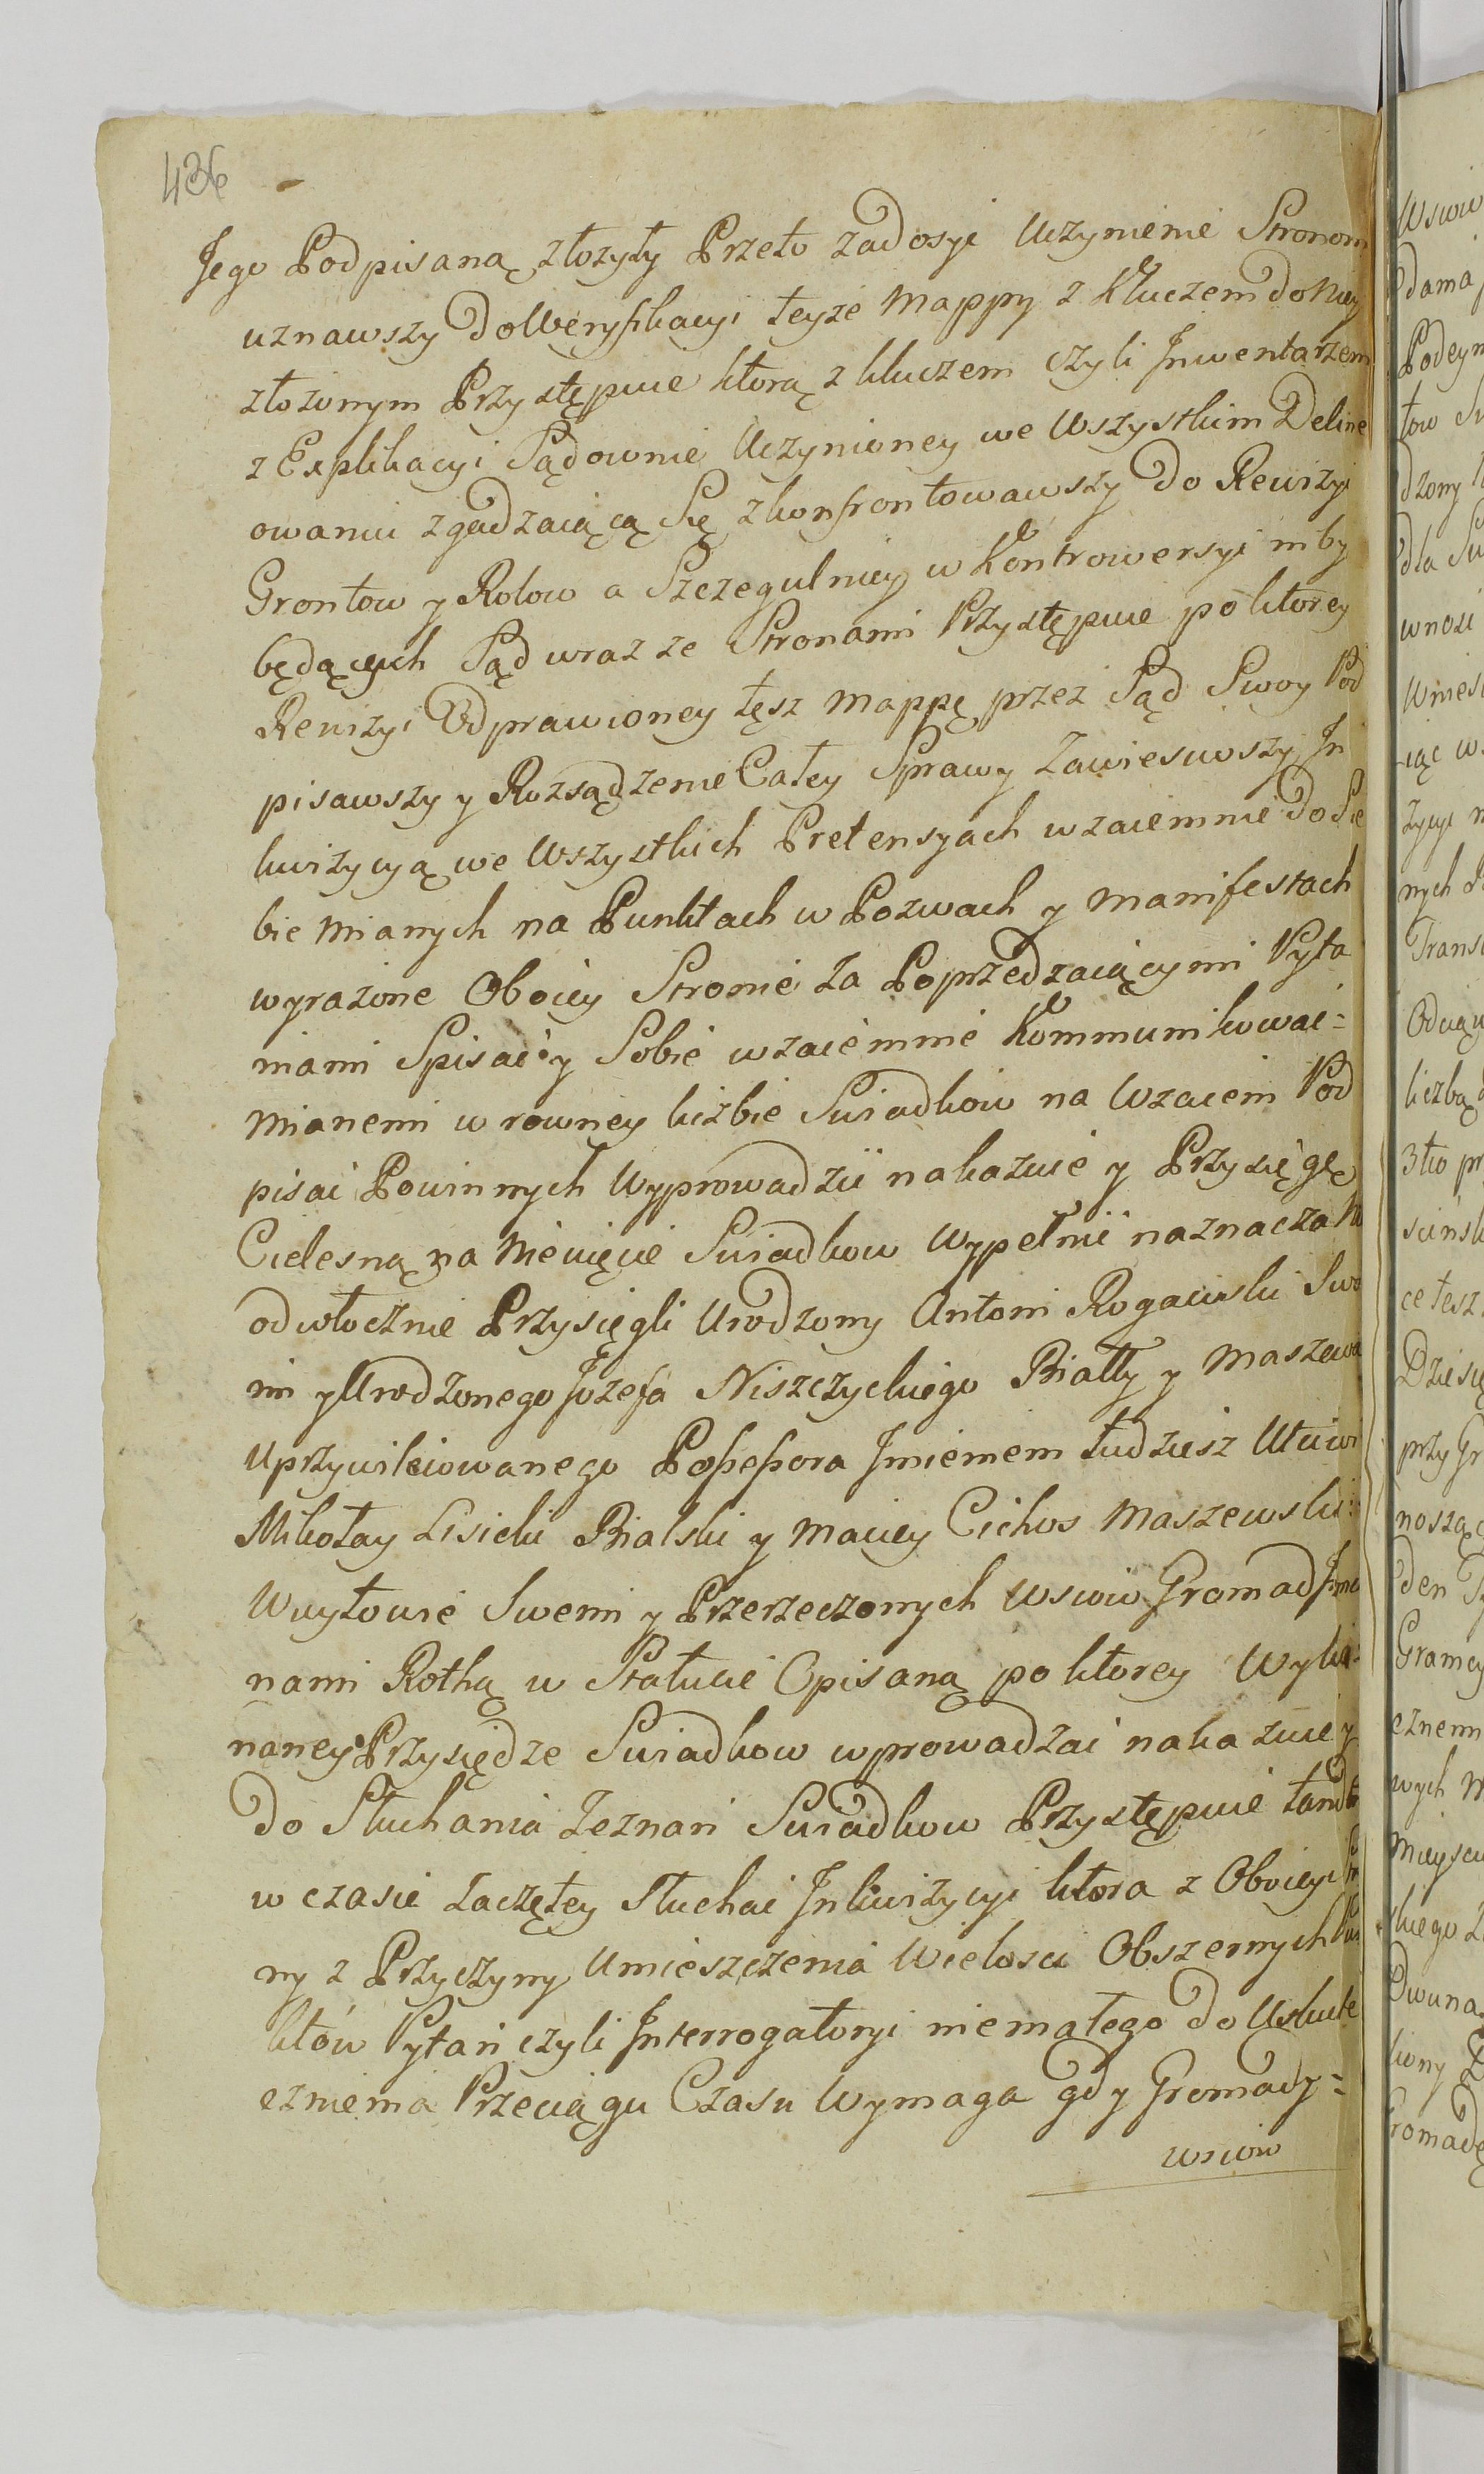 436
Jego Podpisaną złożyły Przeto zadosyć Uczynienie Stronom
uznawszy do Weryfikacyi teyże Mappy z Kluczem do Niey
złożonym Przystępuie którą z kluczem czyli Jnwentarzem
z Explikacyi Sądownie Uczynioney we Wszystkim Deline
owaniu zgadzaiącą Się zkonfrontowawszy do Rewizyi
Grontow y Rolow a Szczegulniey w Kontrowersyi niby
będących Sąd wraz ze Stronami Przystępuie po ktorey
Rewizyi Odprawioney tęsz Mappę przez Sąd Swoy Pod
pisawszy y Rozsądzenie Całey Sprawy Zawiesiwszy Jn
kwizycyą we Wszystkich Pretensyach wzaiemnie do Sie
bie Mianych na Punktach w Pozwach y Manifestach
wyrażone Oboiey Stronie za Poprzedzaiącymi Pyta
niami Spisać y Sobie wzaiemnie Kommunikować=
Mianemi w rowney liczbie Swiadkow na Wzaiem Pod
pisać Powinnych Wyprowadzić nakazuie y Przysięgę
Cielesną na Niewięcie Swiadkow Wypełnić naznacza N
odwłocznie Przysięgli Urodzony Antoni Rogawski Swo
im y Urodzonego Jozefa Niszczyckiego Biały y Maszewa
Uprzywileiowanego Possessora Jmieniem tudziesz Uczciwi
Mikołay Lisicki Bialski y Maciey Cichos Maszewski:
Wuytowie Swemi y Przerzeczonych Wsiow Gromad Jmio
nami Rothą w Statucie Opisaną po ktorey Wyko=
naney Przysiędze Swiadkow wprowadzać nakazuie y
do Słuchania Zeznań Swiadkow Przystępuie
w czasie zaczętey Słuchać Jnkwizycyi ktora z Oboiey
ny z Przyczyny Umieszczenia Wielosci Obszernych
któw Pytań czyli Jnterrogatoryi niemałego do Uskute
cznienia Przeciągu Czasu Wymaga gdy Gromady=
wsiow